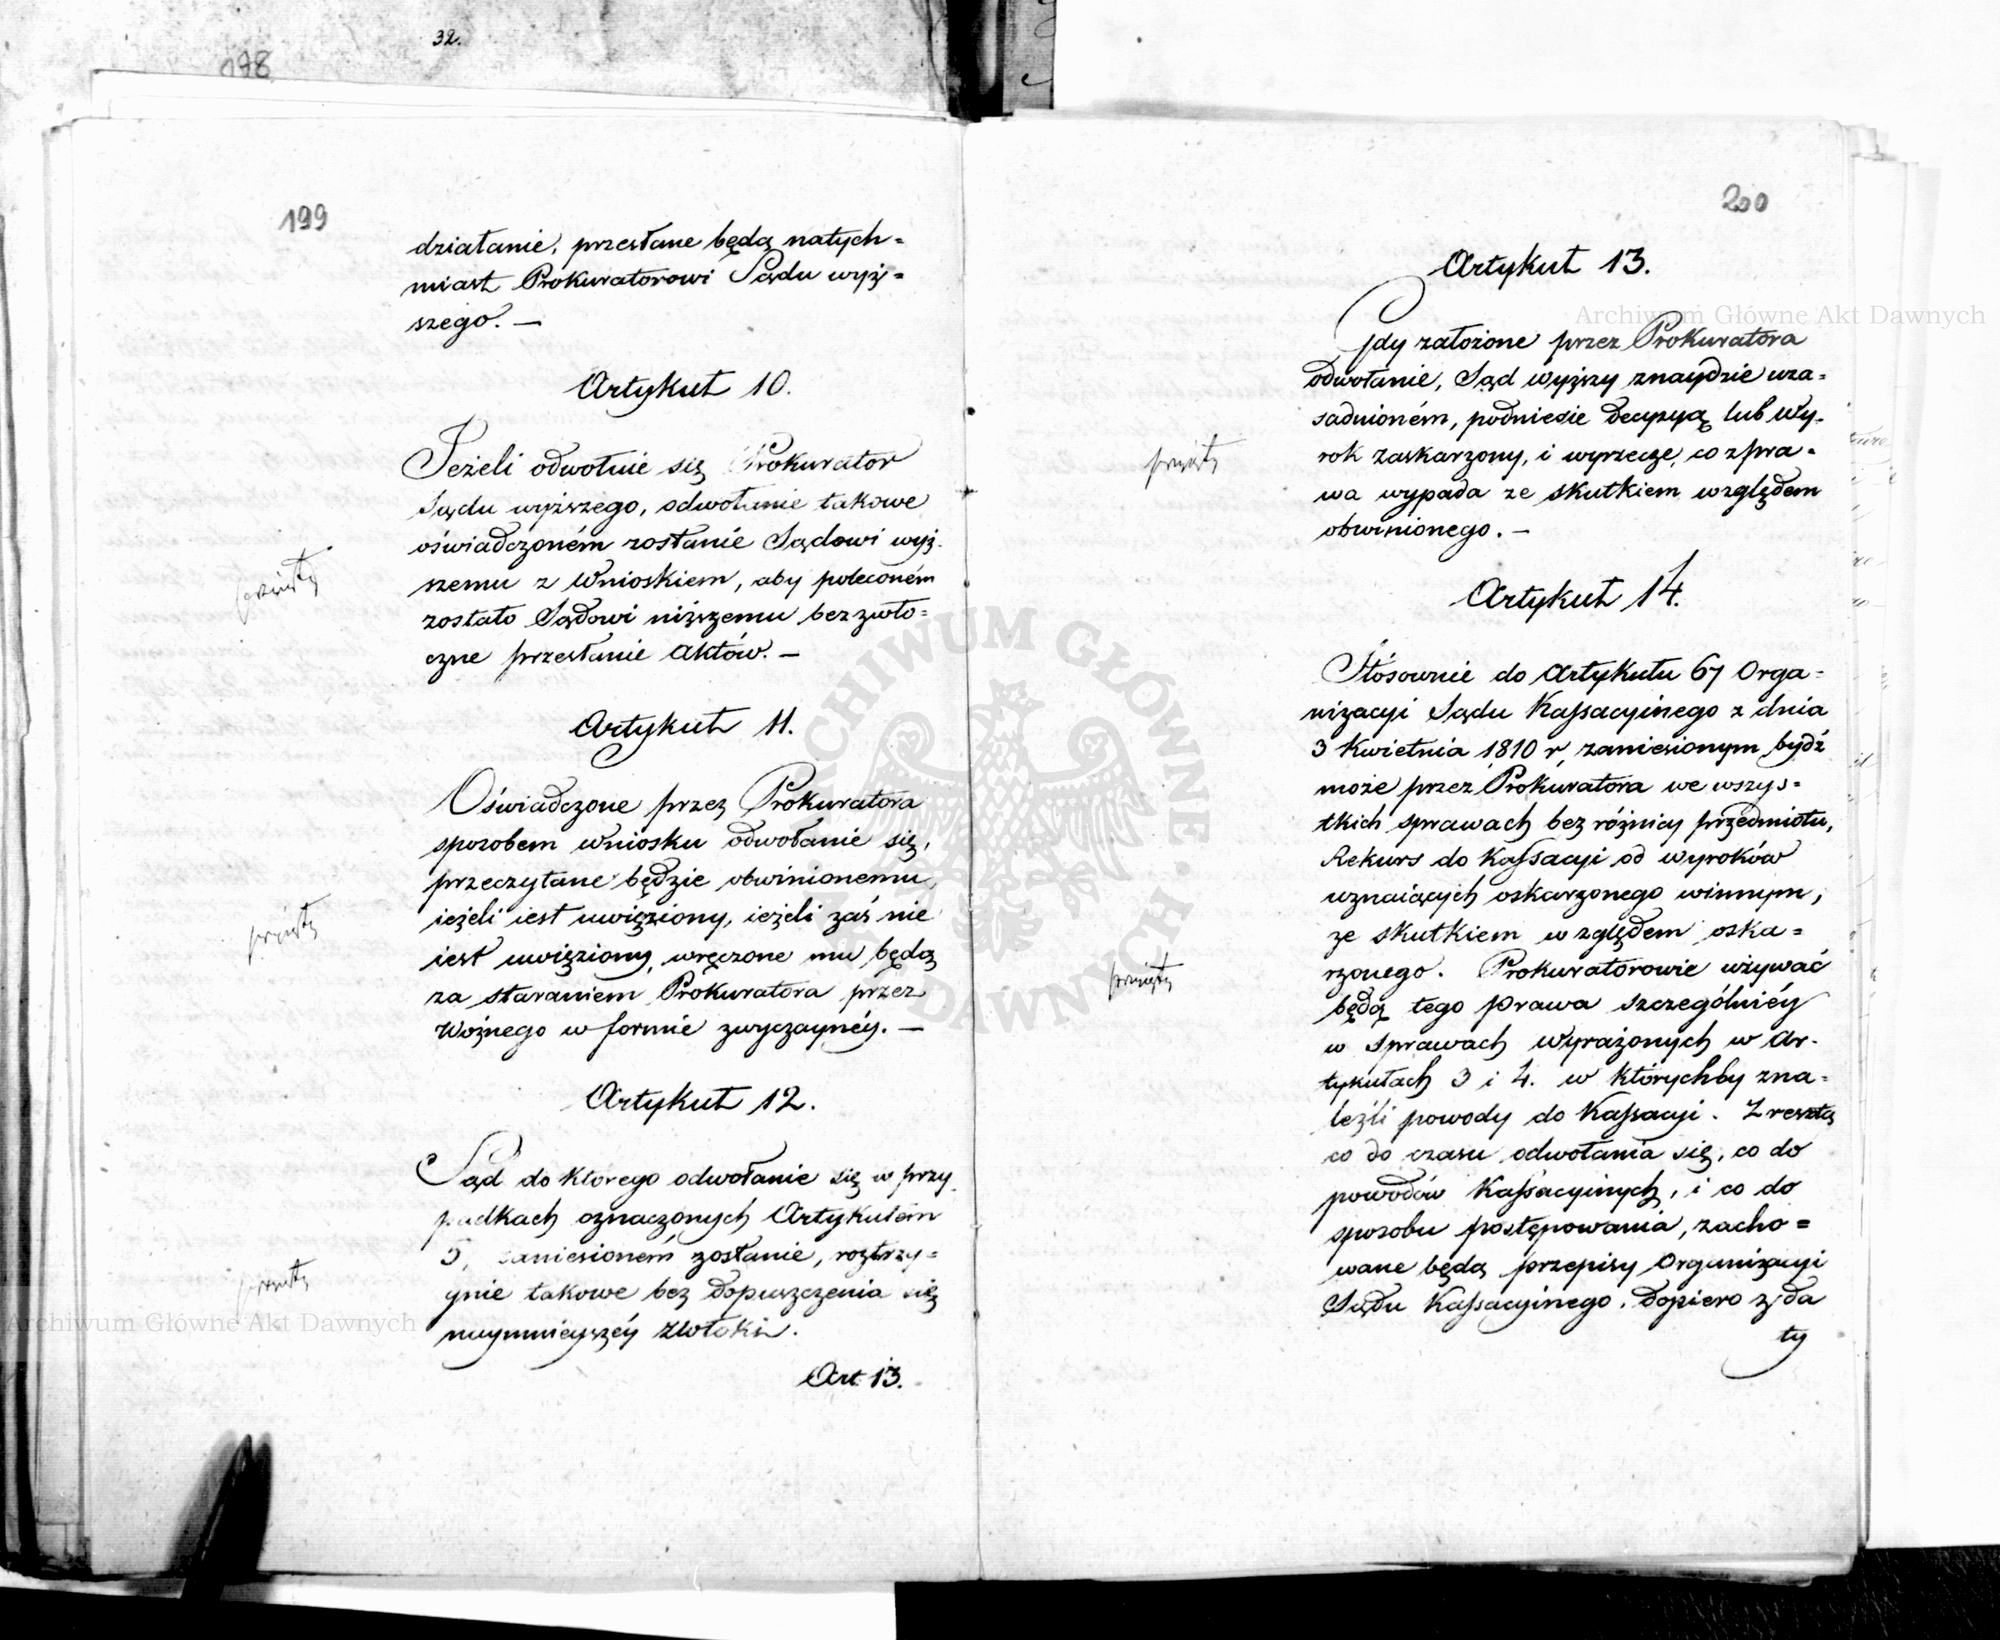 32.
198
199
działanie, przesłane będą natych=
miast Prokuratorowi Sądu wyż=
szego. —
Artykuł 10.
Jeżeli odwołuie się Prokurator
Sądu wyższego, odwołanie takowe
oświadczoném zostanie Sądowi wyż-
szemu z Wnioskiem, aby poleconém
zostało Sądowi niższemu bezzwło=
czne przesłanie aktów. —
przięty
Artykuł 11.
Oświadczone przez Prokuratora
sposobem wniosku odwołanie się,
przeczytane będzie obwinionemu,
ieżeli iest uwięziony, ieżeli zaś nie
iest uwięziony, wręczone mu będą
za staraniem Prokuratora przez
Woźnego w formie zwyczaynéy. —
przięty
Artykuł 12.
Sąd do którego odwołanie się w przy-
padkach oznaczonych Artykułem
5, zaniesionem zostanie, roztrzy=
gnie takowe bez dopuszczenia się
naymnieyszéy zwłoki.
przięty
Art. 13.
200
Artykuł 13.
Gdy założone przez Prokuratora
odwołanie, Sąd wyższy znaydzie uza=
sadnioném, podniesie decyzyą lub Wy-
rok zaskarżony, i wyrzecze, co z pra=
wa wypada ze skutkiem względem
obwinionego. —
przięty
Artykuł 14.
Stósownie do Artykułu 67 Orga=
nizacyi Sądu Kassacyinego z dnia
3 Kwietnia 1810 r, zaniesionym bydź
może przez Prokuratora we wszys=
tkich sprawach bez różnicy przedmiotu,
Rekurs do Kassacyi od wyroków
uznaiących oskarżonego winnym,
ze skutkiem względem oska=
rżonego. Prokuratorowie używać
będą tego prawa szczególniéy
w sprawach wyrażonych w Ar-
tykułach 3 i 4. w którychby zna=
leźli powody do Kassacyi. Zresztą
co do czasu odwołania się, co do
powodów Kassacyinych, i co do
sposobu postępowania, zacho=
wane będą przepisy Organizacyi
Sądu Kassacyinego. Dopiero z da
ty
przięty
Archiwum Główne Akt Dawnych
Archiwum Główne Akt Dawnych
ARCHIWUM GŁÓWNE
AKT DAWNYCH